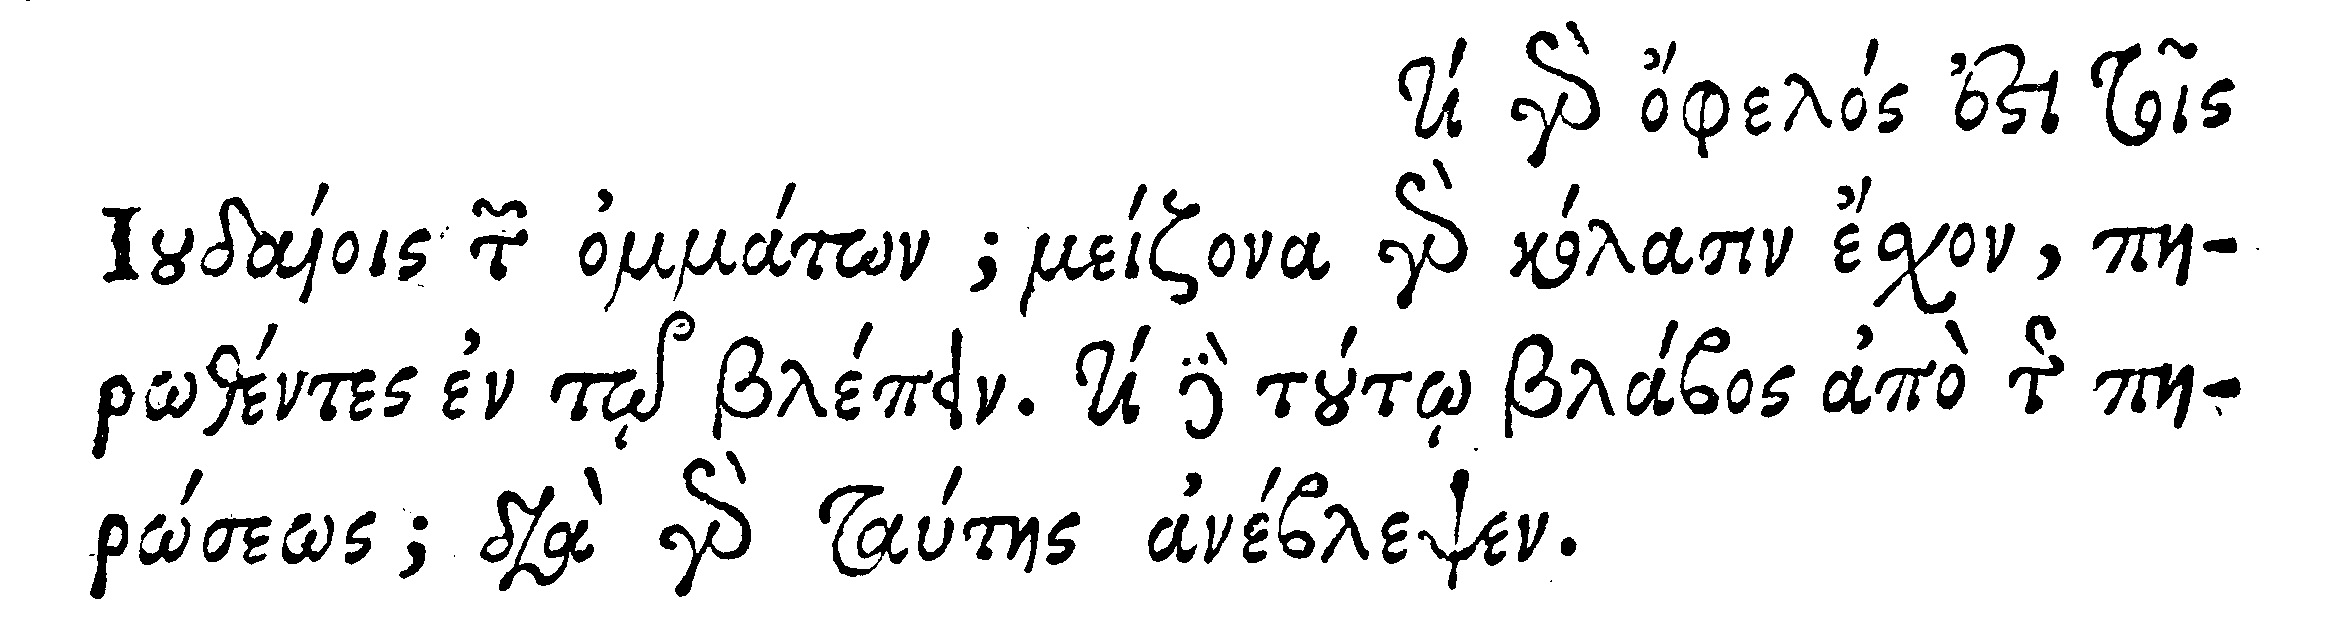 τί γὰρ ὄφελός ἐστι τοῖς
Ἰουδαίοις τῶν ὀμμάτων; μείζονα γὰρ κόλασιν ἔχον, πη-
ρωθέντες ἐν τῷ βλέπειν. τί δὲ τούτῳ βλάβος ἀπὸ τῆς πη-
ρώσεως; διὰ γὰρ ταύτης ἀνέβλεψεν.